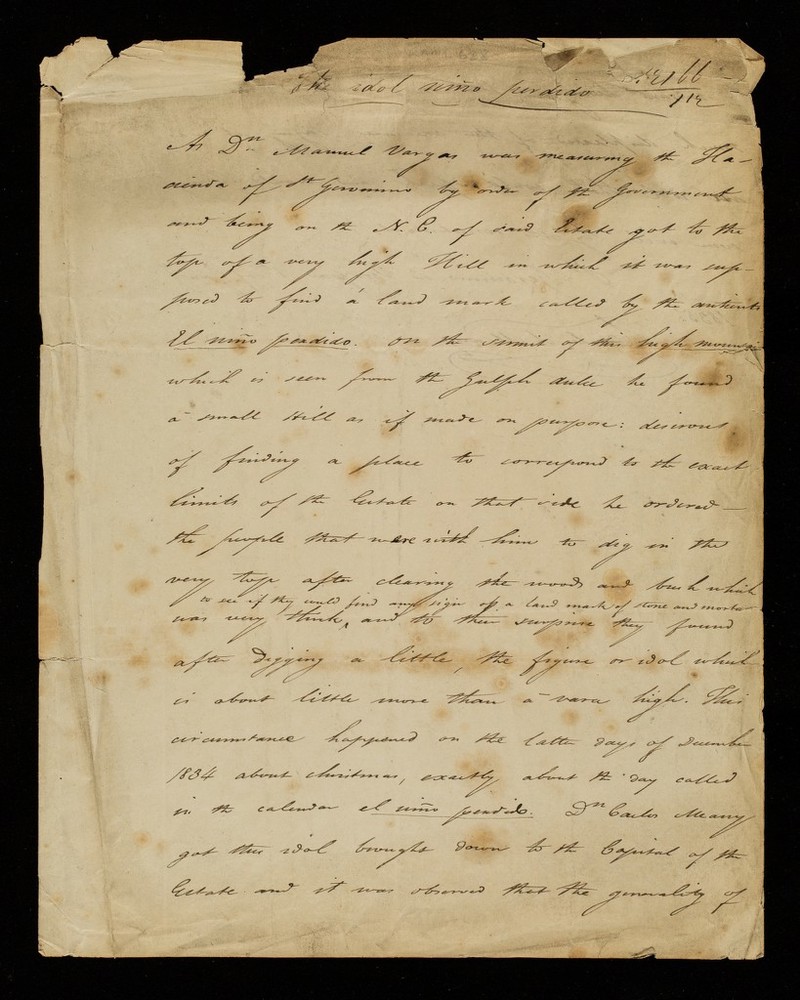 The idol niño perdido
As Dn Manuel Vargas was measuring the Ha-
cienda of St Geronimo by order of the Government
and being on the N. E. of said Estate got to the
top of a very high Hill in which it was sup-
posed to find á land mark called by the antients
El niño perdido. On the summit of this high mountain
which is seen from the Gulph dulce he found
á small Hill as if made on purpose: desirous
of finding a place to correspond to the exact
limits of the Estate on that side he ordered
the people that were with him to dig in the
very top after clearing the woods and bush which
to see if they could find any sign of a land mark of stone and mortar
was very thick, and to their surprise they found
after digging a little, the figure or idol which
is about little more than á vara high. This
circumstance happened on the latter days of December
1834 about christmas, exactly about the day called
in the calendar el niño perdido. Dn Carlos Meany
got this idol brought down to the Capital of the
Estate and it was observed that the generality of